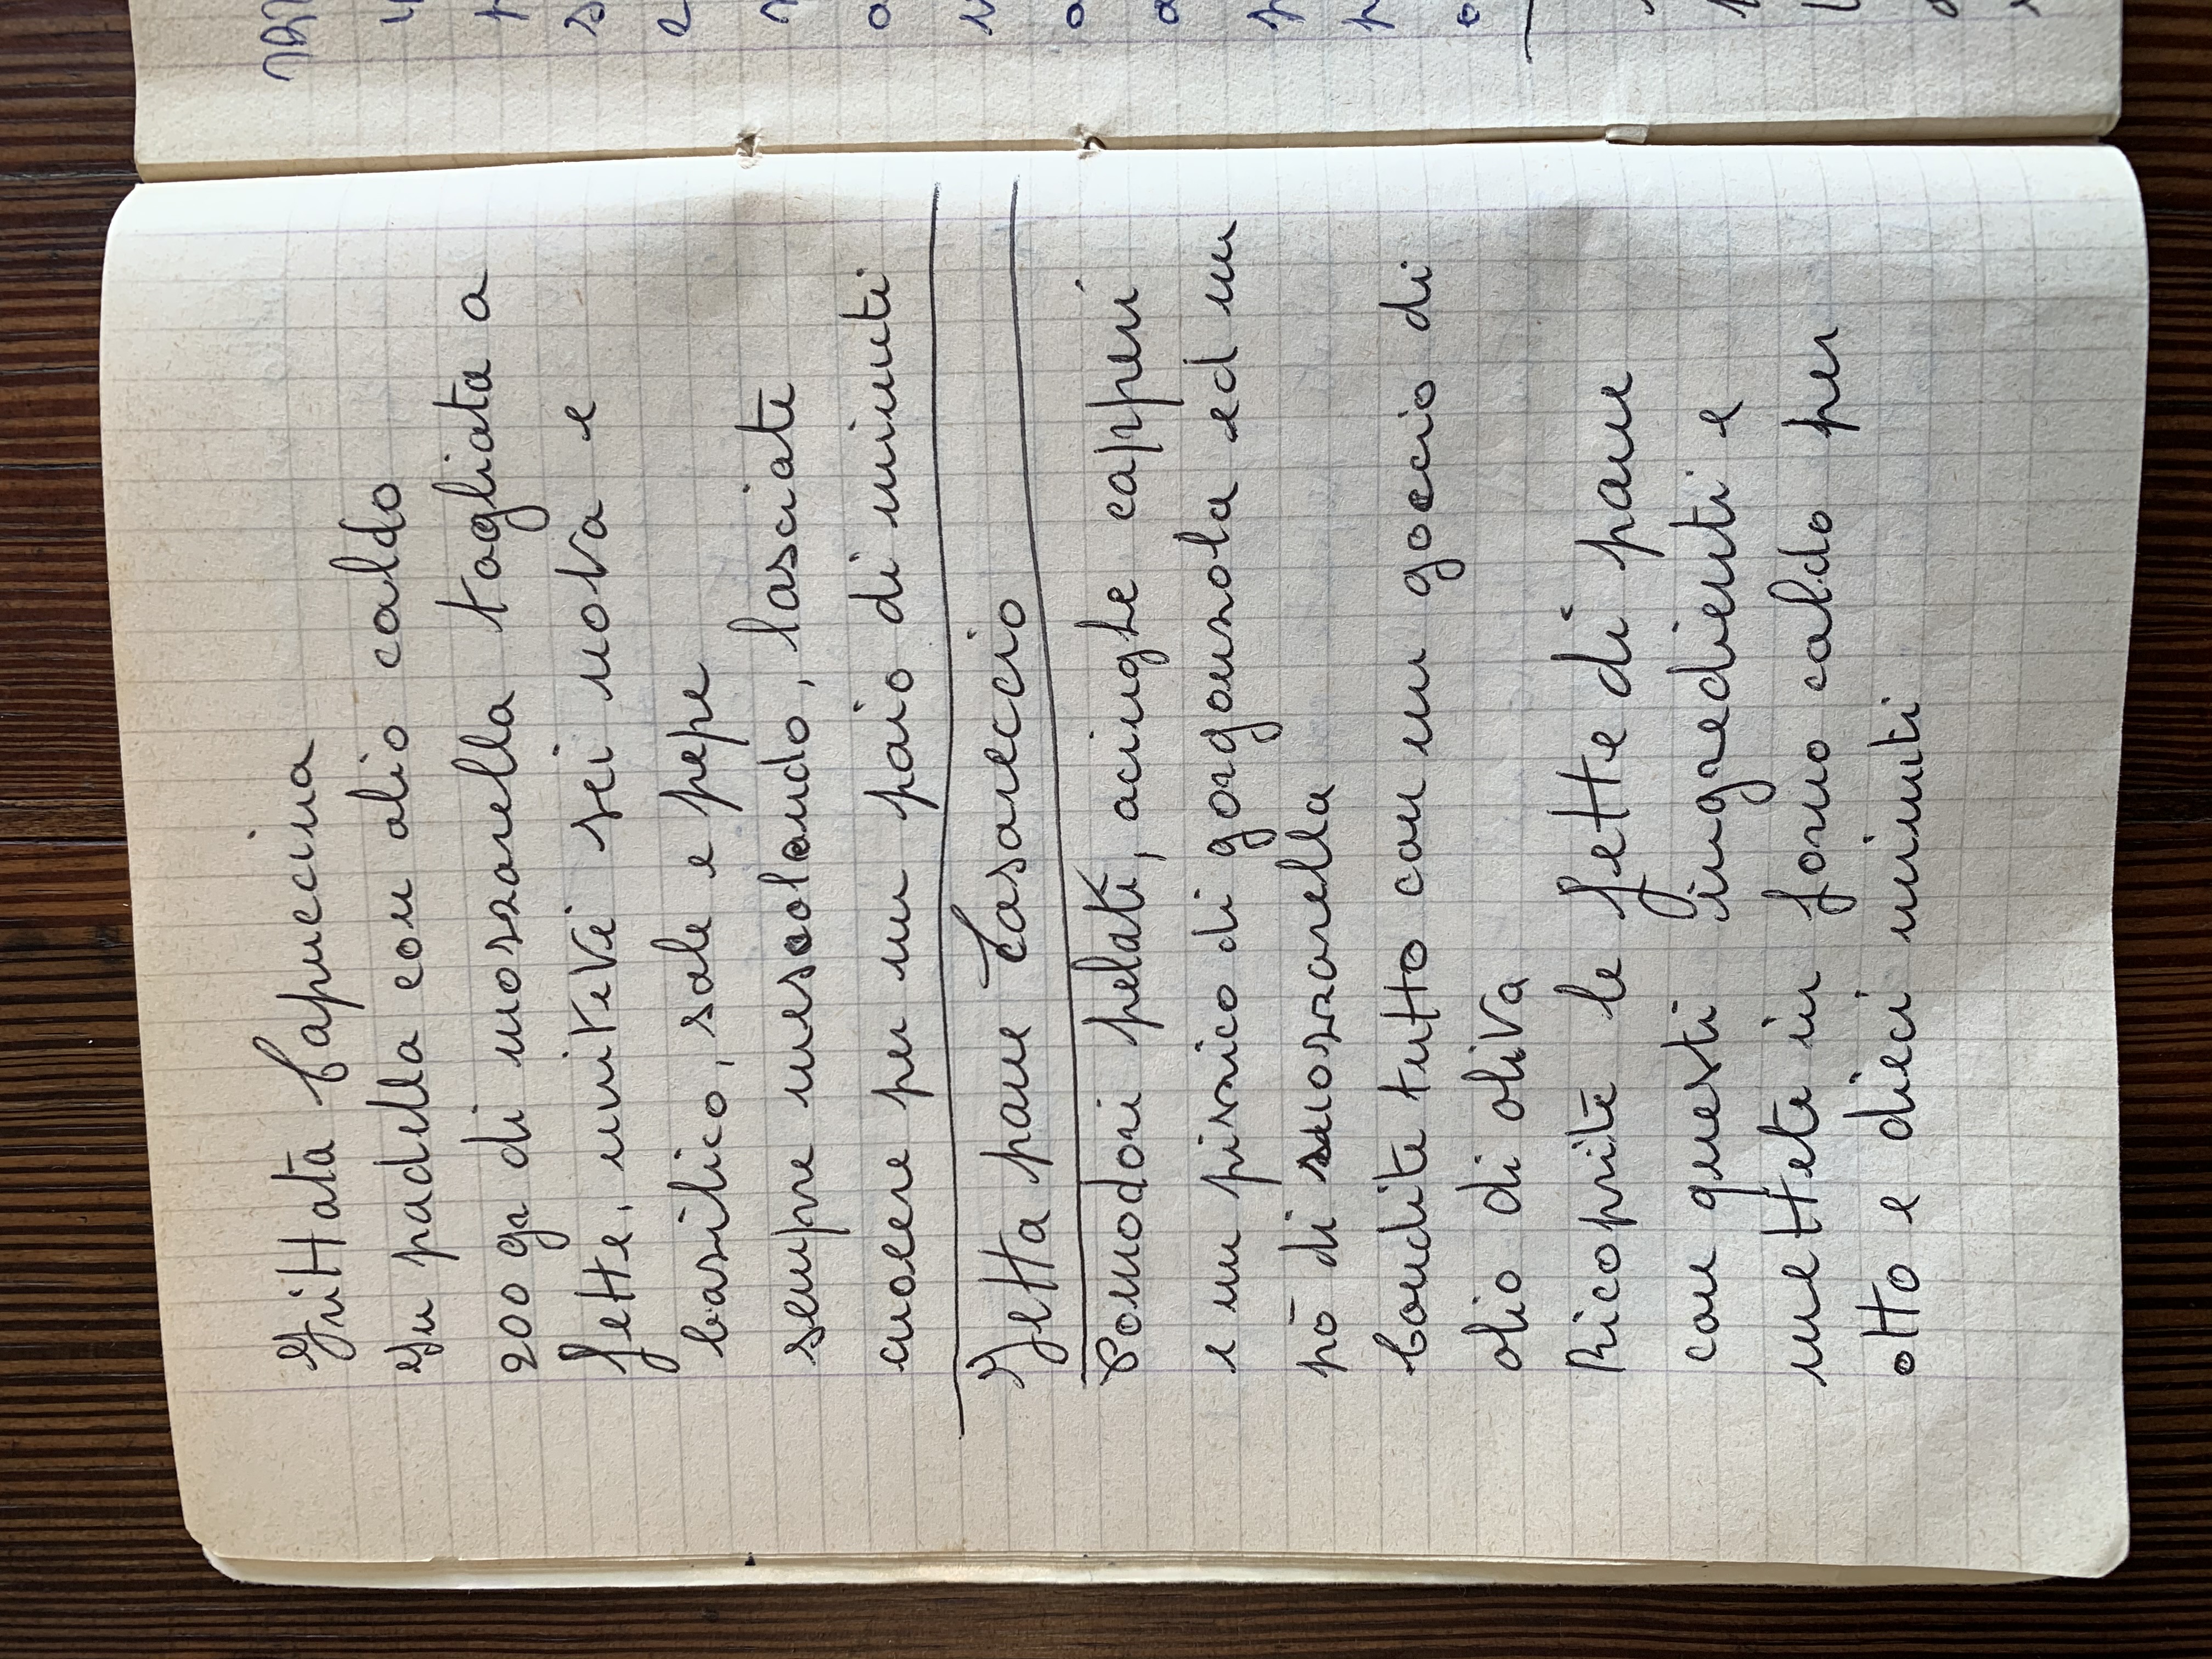 Frittata Capuccina
In padella con olio caldo
200 gr di mozzarella tagliata a
fette, unitevi sei uova e
basilico, sale e pepe
sempre mescolando, lasciate
cuocere per un paio di minuti
Fetta pane Casareccio
Pomodori pelati, aciughe capperi
e un pizzico di gorgonzola ed un
pò di mozzarella
Condite tutto con un goccio di
olio di oliva
Ricoprite le fette di pane
con questi ingredienti e
mettete in forno caldo per
otto e dieci minuti